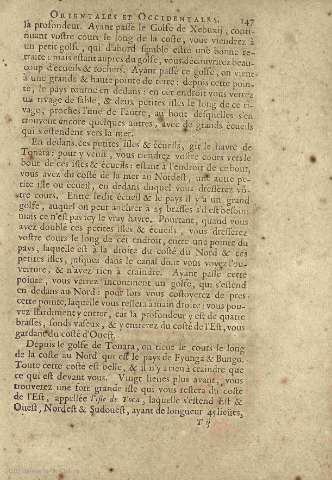 ORIENTALES ET OCCIDENTALES. 147
sa profondeur. Ayant passé le Golfe de Xebuxij, conti-
nuant vostre cours le long de la coste, vous viendrez à
un petit golfe, qui d'abord semble estre une bonne re-
traite: mais estant au pres du golfe, vous découvrirez beau-
coup d'écueils & rochers. Ayant passé ce golfe, on vient
à une grande & haute pointe de terre; depuis cette poin-
te, le pays tourne en dedans: en cet endroit vous verrez
un rivage de sable, & deux petites isles le long de ce ri-
vage, proches l'une de l'autre, au bout desquelles s'en
trouvent encore quelques autres, avec de grands écueils
qui s'estendent vers la mer.
En dedans, ces petites isles & écueils, gît le havre de
Tonara: pour y venir, vous tiendrez vostre cours vers le
bout de ces isles & écueils: estant à l'endroit de ce bout,
vous avez du costé de la mer au Nordest, une autre pe-
tite isle ou écueil, en dedans duquel vous dresserez vô-
tre cours. Entre ledit écueil & le pays il y a un grand
golfe, auquel on peut anchrer à 25 brasses s'il est besoin:
mais ce n'est pas icy le vray havre. Pourtant, quand vous
avez doublé ces petites isles & écueils, vous dresserez
vostre cours le long de cet endroit, entre une pointe du
pays, laquelle est à la droite du costé du Nord & ces
petites isles, jusques dans le canal dont vous voyez l'ou-
verture, & n'avez rien à craindre. Ayant passé cette
pointe, vous verrez incontinent un golfe, qui s'estend
en dedans au Nord: pour lors vous costoyerez de pres
cette pointe, laquelle vous restera à main droite: vous pou-
vez hardiment y entrer, car la profondeur y est de quatre
brasses, fonds vaseux, & y entrerez du costé de l'Est, vous
gardant du costé d'Ouest.
Depuis le golfe de Tonara, on tient le cours le long
de la coste au Nord qui est le pays de Fyunga & Bungo.
Toute cette coste est belle, & il n'y a rien à craindre que
ce qui est devant vous. Vingt lieuës plus avant, vous
trouverez une fort grande isle qui vous restera du costé
de l'Est, appellée l'isle de Toca, laquelle s'estend Est &
Ouest, Nordest & Sudouest, ayant de longueur 45 lieuës,
T ij